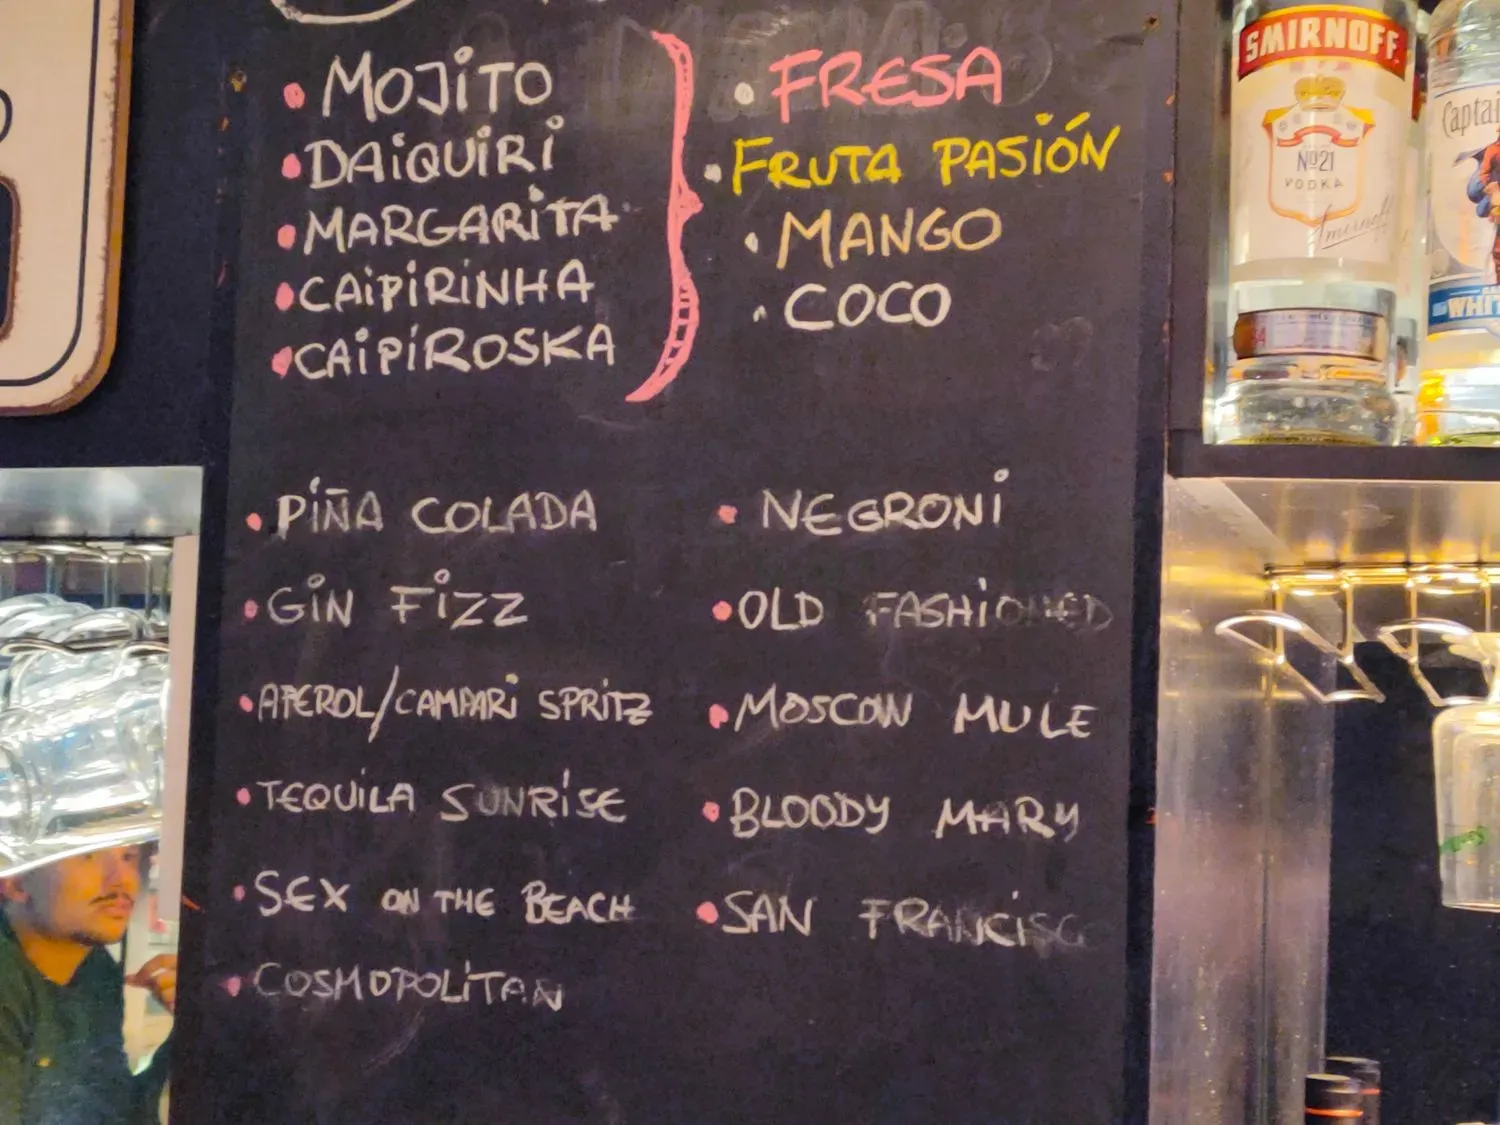 • MOJITO
• DAIQUIRI
• MARGARITA
• CAIPIRINHA
• CAIPIROSKA
• FRESA
• FRUTA PASIÓN
• MANGO
• COCO
• PIÑA COLADA
• GIN FIZZ
• APEROL/CAMPARI SPRITZ
• TEQUILA SUNRISE
• SEX ON THE BEACH
• COSMOPOLITAN
• NEGRONI
• OLD FASHIONED
• MOSCOW MULE
• BLOODY MARY
• SAN FRANCISC
SMIRNOFF
Nº21
VODKA
Smirnoff
Captai
WHIT